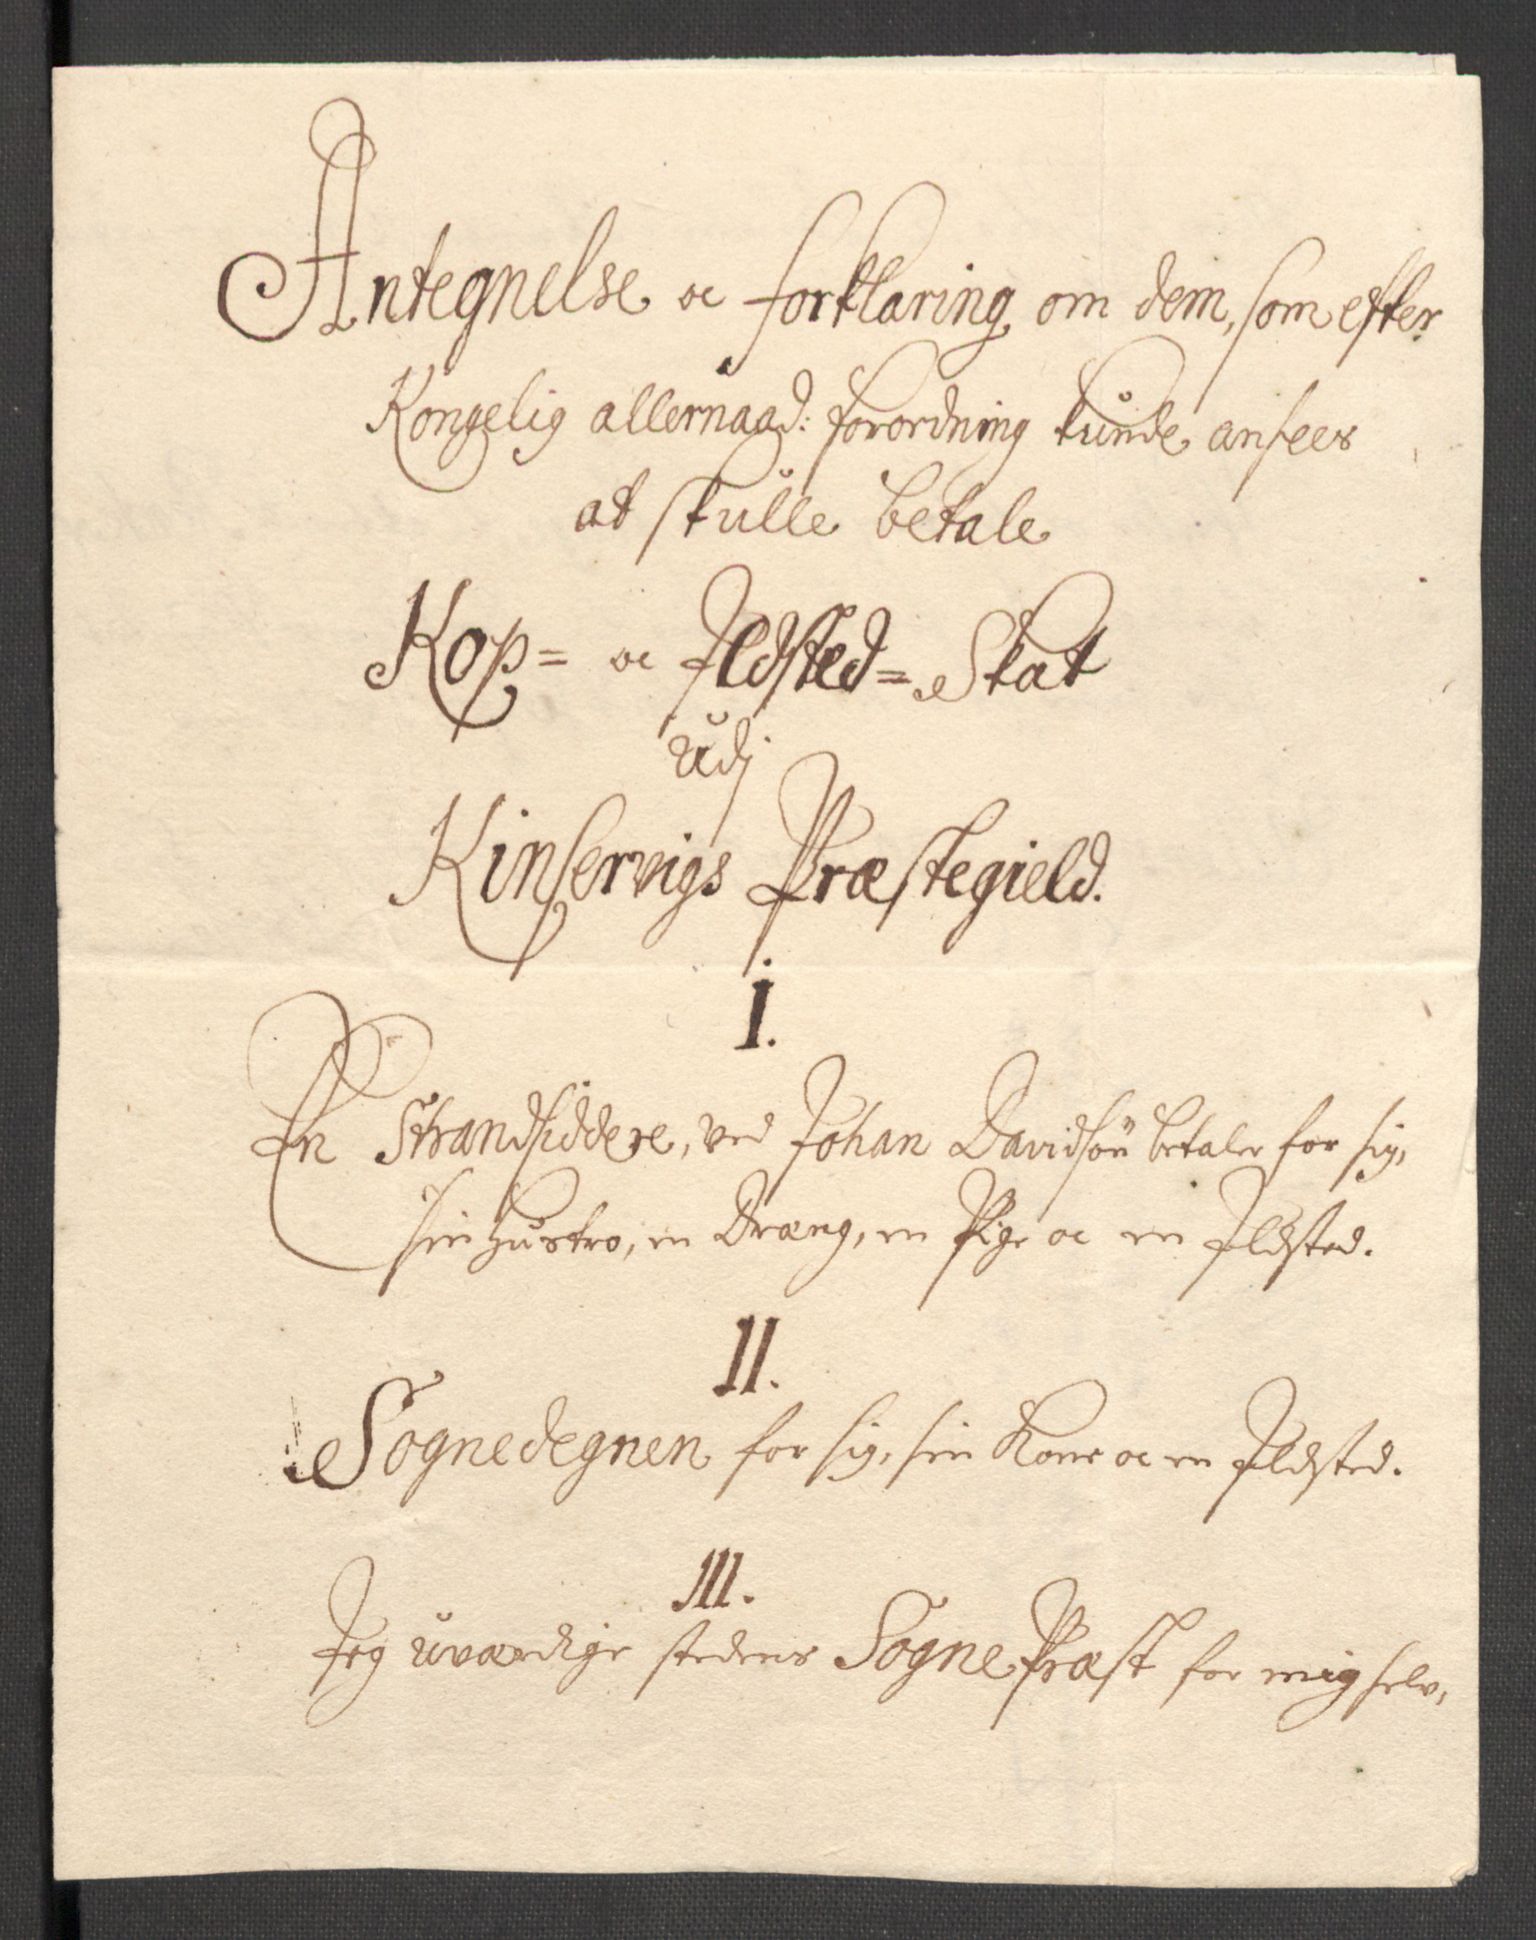 Antegnelse oc forklaring om dem, som efter
Kongelig allernaad: forordning kunde ansees
at skulle betale
Kop= oc Ildsted= Skat
udj
Kinservigs Præstegield.
I.
En Strandsiddere, ved Johan Davidsøn betaler for sig,
sin hustro, en Dræng, en Pige oc en Ildsted.
II.
Sognedegnen for sig, sin Kone oc en Ildsted.
III.
Jeg uværdige stedens Sogne Præst for mig selv,